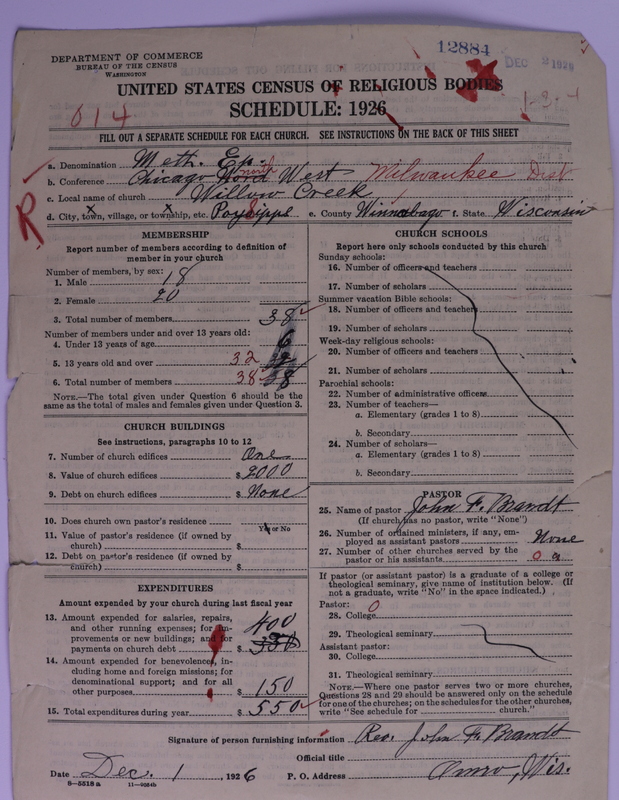 12884
DEC 2 1926
DEPARTMENT OF COMMERCE
BUREAU OF THE CENSUS
WASHINGTON
UNITED STATES CENSUS OF RELIGIOUS BODIES
SCHEDULE: 1926
614
1-3-4
FILL OUT A SEPARATE SCHEDULE FOR EACH CHURCH. SEE INSTRUCTIONS ON THE BACK OF THIS SHEET
R
a. Denomination Meth. Ep.
b. Conference Chicago north West Milwaukee Dist
c. Local name of church Willow Creek
d. City, town, village, or township, etc. Poysippi e. County Winnebago f. State Wisconsin
MEMBERSHIP
Report number of members according to definition of
member in your church
Number of members, by sex:
1. Male 18
2. Female 20
3. Total number of members 38
Number of members under and over 13 years old:
4. Under 13 years of age 6
5. 13 years old and over 32
6. Total number of members 38 38
NOTE.—The total given under Question 6 should be
same as the total of males and females given under Question 3.
CHURCH BUILDINGS
See instructions, paragraphs 10 to 12
7. Number of church edifices One
8. Value of church edifices $ 2000
9. Debt on church edifices $ None
10. Does church own pastor's residence
Yes or No
11. Value of pastor's residence (if owned by
church) $
12. Debt on pastor's residence (if owned by
church) $
EXPENDITURES
Amount expended by your church during last fiscal year
13. Amount expended for salaries, repairs,
and other running expenses; for im-
provements or new buildings; and for
payments on church debt $ 400
14. Amount expended for benevolences, in-
cluding home and foreign missions; for
denominational support; and for all
other purposes $ 150
15. Total expenditures during year $ 550
CHURCH SCHOOLS
Report here only schools conducted by this church
Sunday schools:
16. Number of officers and teachers
17. Number of scholars
Summer vacation Bible schools:
18. Number of officers and teachers
19. Number of scholars
Week-day religious schools:
20. Number of officers and teachers
21. Number of scholars
Parochial schools:
22. Number of administrative officers
23. Number of teachers—
a. Elementary (grades 1 to 8)
b. Secondary
24. Number of scholars—
a. Elementary (grades 1 to 8)
b. Secondary
PASTOR
25. Name of pastor John F. Brandt
(If church has no pastor, write "None")
26. Number of ordained ministers, if any, em-
ployed as assistant pastors None
27. Number of other churches served by the
pastor or his assistants 0
If pastor (or assistant pastor) is a graduate of a college or
theological seminary, give name of institution below. (If
not a graduate, write "No" in the space indicated.)
Pastor: 0
28. College
29. Theological seminary
Assistant pastor:
30. College
31. Theological seminary
NOTE.—Where one pastor serves two or more churches,
Questions 28 and 29 should be answered only on the schedule
for one of the churches; on the schedules for the other churches,
write "See schedule for church."
Signature of person furnishing information Rev. John F. Brandt
Official title
Date Dec. 1, 1926 P. O. Address Omro, Wis.
8—5518a 11—9284b